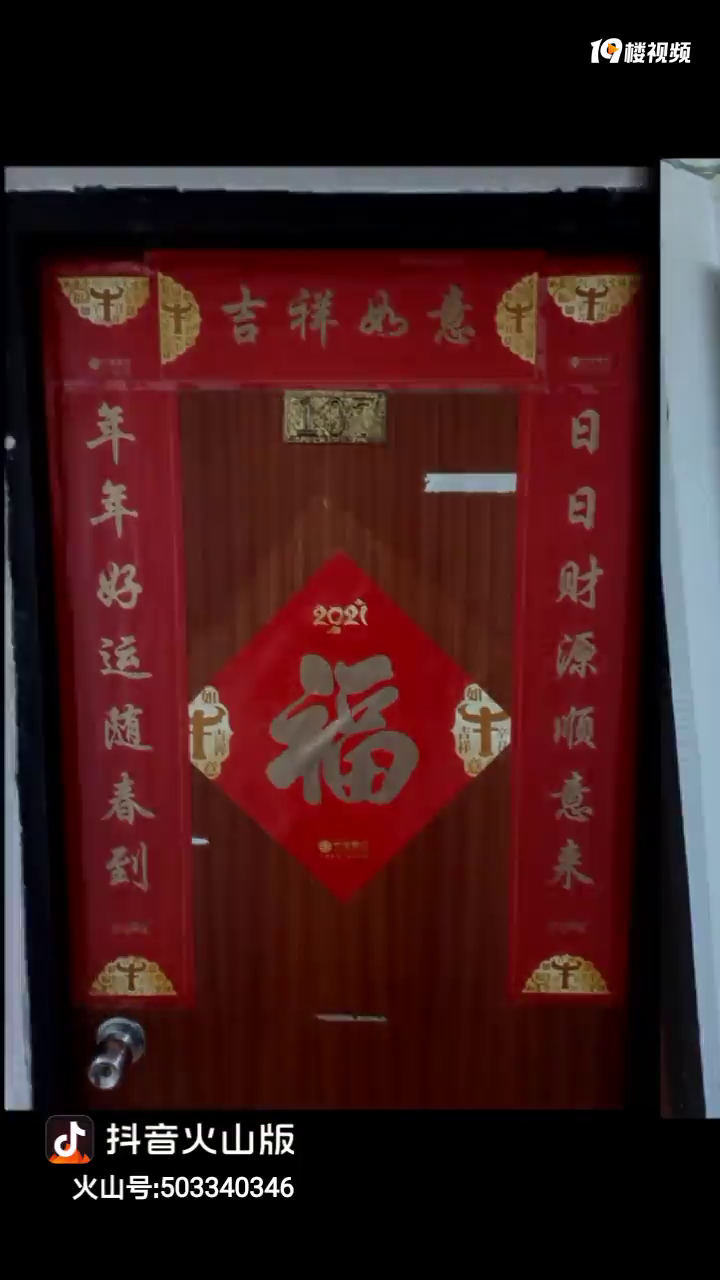 19楼视频
吉祥如意
年年好运随春到
日日财源顺意来
2021
福
抖音火山版
火山号:503340346